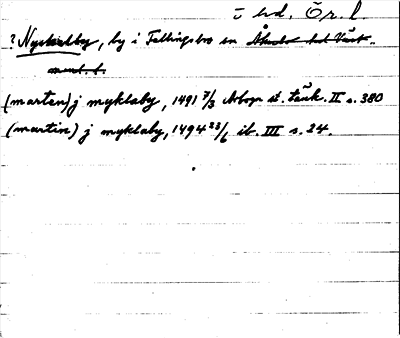 hd. Ör. l.
? Nyckelby, by i Fellingsbro sn Åkerbo hd Väst-
manl. l.
(marten) j myklaby, 1491 7/3 Arboga st. tänk. II s. 380
(martin) j myklaby, 1494 23/6 ib. III s. 24.